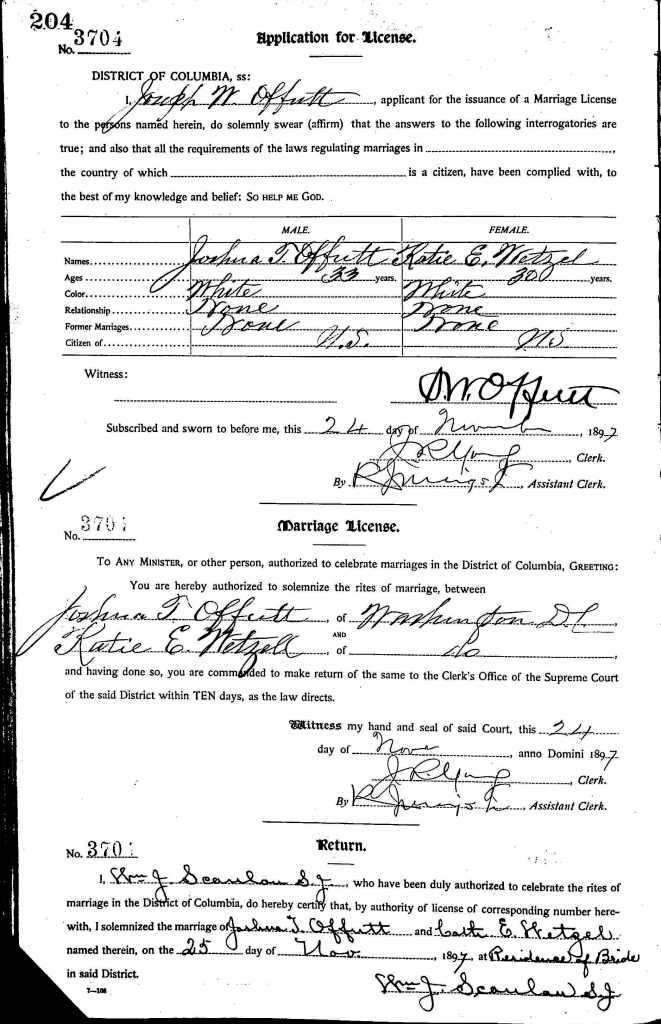 204
No. 3704
Application for License.
DISTRICT OF COLUMBIA, ss:
I, Joseph W. Offutt, applicant for the issuance of a Marriage License
to the persons named herein, do solemnly swear (affirm) that the answers to the following interrogatories are
true; and also that all the requirements of the laws regulating marriages in
the country of which is a citizen, have been complied with, to
the best of my knowledge and belief: SO HELP ME GOD.
MALE. FEMALE.
Names Joshua T. Offutt Katie E. Wetzel
Ages 33 years. 30 years.
Color White White
Relationship None None
Former Marriages None None
Citizen of U.S. U.S
Witness:
W. Offutt
Subscribed and sworn to before me, this 24 day of November, 1897
J R Young, Clerk.
By R, Assistant Clerk.
No. 370
Marriage License.
TO ANY MINISTER, or other person, authorized to celebrate marriages in the District of Columbia, GREETING:
You are hereby authorized to solemnize the rites of marriage, between
Joshua T. Offutt, of Washington D.C
AND
Katie E. Wetzell, of do,
and having done so, you are commanded to make return of the same to the Clerk's Office of the Supreme Court
of the said District within TEN days, as the law directs.
Witness my hand and seal of said Court, this 24
day of Nove, anno Domini 1897
J R Young, Clerk.
By R, Assistant Clerk.
No. 370
Return.
I, Wm J. Scanlan S.J, who have been duly authorized to celebrate the rites of
marriage in the District of Columbia, do hereby certify that, by authority of license of corresponding number here-
with, I solemnized the marriage of Joshua T. Offutt and Cath E. Wetzel
named therein, on the 25 day of Nov., 1897, at Residence of Bride
in said District.
Wm J. Scanlan S.J.
7—108